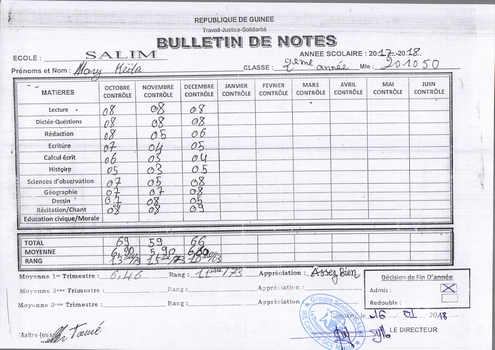 REPUBLIQUE DE GUINEE
Travail-Justice-Solidarité
BULLETIN DE NOTES
ECOLE : SALIM ANNEE SCOLAIRE : 2017-2018
Prénoms et Nom : Mary Keita CLASSE : 2eme année Mle : 201050
MATIERES OCTOBRE CONTRÔLE NOVEMBRE CONTRÔLE DECEMBRE CONTRÔLE JANVIER CONTRÔLE FEVRIER CONTRÔLE MARS CONTRÔLE AVRIL CONTRÔLE MAI CONTRÔLE JUIN CONTRÔLE
Lecture 08 08 08
Dictée-Questions 08 08
Rédaction 08 05 06
Ecriture 07 04 05
Calcul écrit 06 03 04
Histoire 05 03 05
Sciences d'observation 07 05 08
Géographie 07 07 08
Dessin 07 08 05
Récitation/Chant 08 08 09
Education civique/Morale
TOTAL 69 59 66
MOYENNE 6,90 5,90
RANG
Moyenne 1er Trimestre : 6,46 Rang : /73 Appréciation : Assez Bien
Moyenne 2ème Trimestre : Rang : Appréciation :
Moyenne 3ème Trimestre : Rang : Appréciation :
Décision de Fin D'année
Admis : X
Redouble :
16 01 2018
Maître LE DIRECTEUR